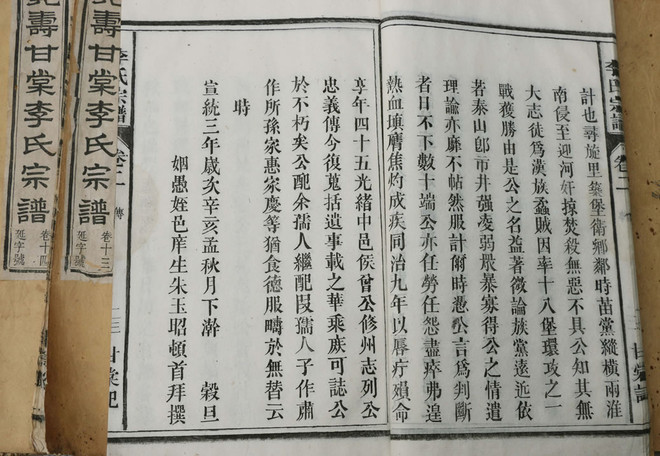 李氏宗譜
卷二
計也尋旋里築堡衛鄉鄰時苗黨縱橫兩淮
南侵至迎河奸掠焚殺無惡不具公知其無
大志徒爲漢族蟊賊因率十八堡環攻之一
戰獲勝由是公之名益著微論族黨遠近依
若泰山卽市井强凌弱衆暴寡得公之情遣
理論亦靡不帖然服計爾時憑公言爲判斷
者日不下數十端公亦任勞任怨盡瘁弗遑
熱血塡膺焦灼成疾同治九年以唇疔殞命
甘棠記
李氏宗譜
卷二
傳
享年四十五光緒中邑侯曾公修州志列公
忠義傳今復蒐括遺事載之華乘族可誌公
於不朽矣公配余孺人繼配段孺人子作肅
作所孫家惠家慶等猶食德服疇於無替云
時
宣統三年歲次辛亥孟秋月下澣 穀旦
姻愚姪邑庠生朱玉昭頓首拜撰
二三
甘棠記
壽甘棠李氏宗譜
卷十三
延字號
壽甘棠李氏宗譜
卷十四
延字號